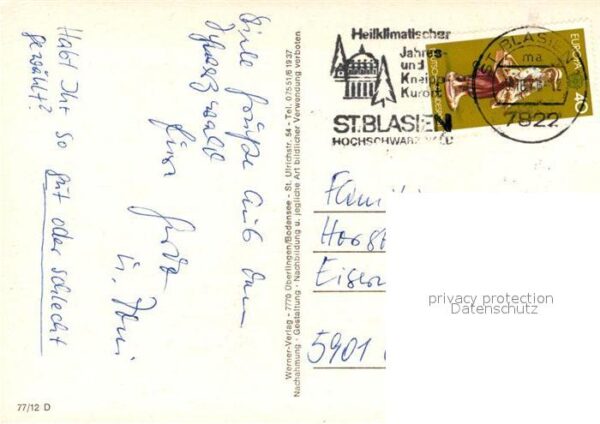 Habt Ihr so gut oder schlecht
gewählt?
Viele Grüße aus dem
Schwarzwald
u.
Werner-Verlag - 7770 Überlingen/Bodensee - St. Ulrichstr. 54 - Tel. 07551/61937
Nachahmung - Gestaltung - Nachbildung u. jegliche Art bildlicher Verwendung verboten
77/12 D
Heilklimatischer
Jahres-
und
Kneipp
Kurort
ST.BLASIEN
HOCHSCHWARZWALD
ST. BLASIEN
ma
7822
EUROPA
40
Famili
Eisen
5901
privacy protection
Datenschutz